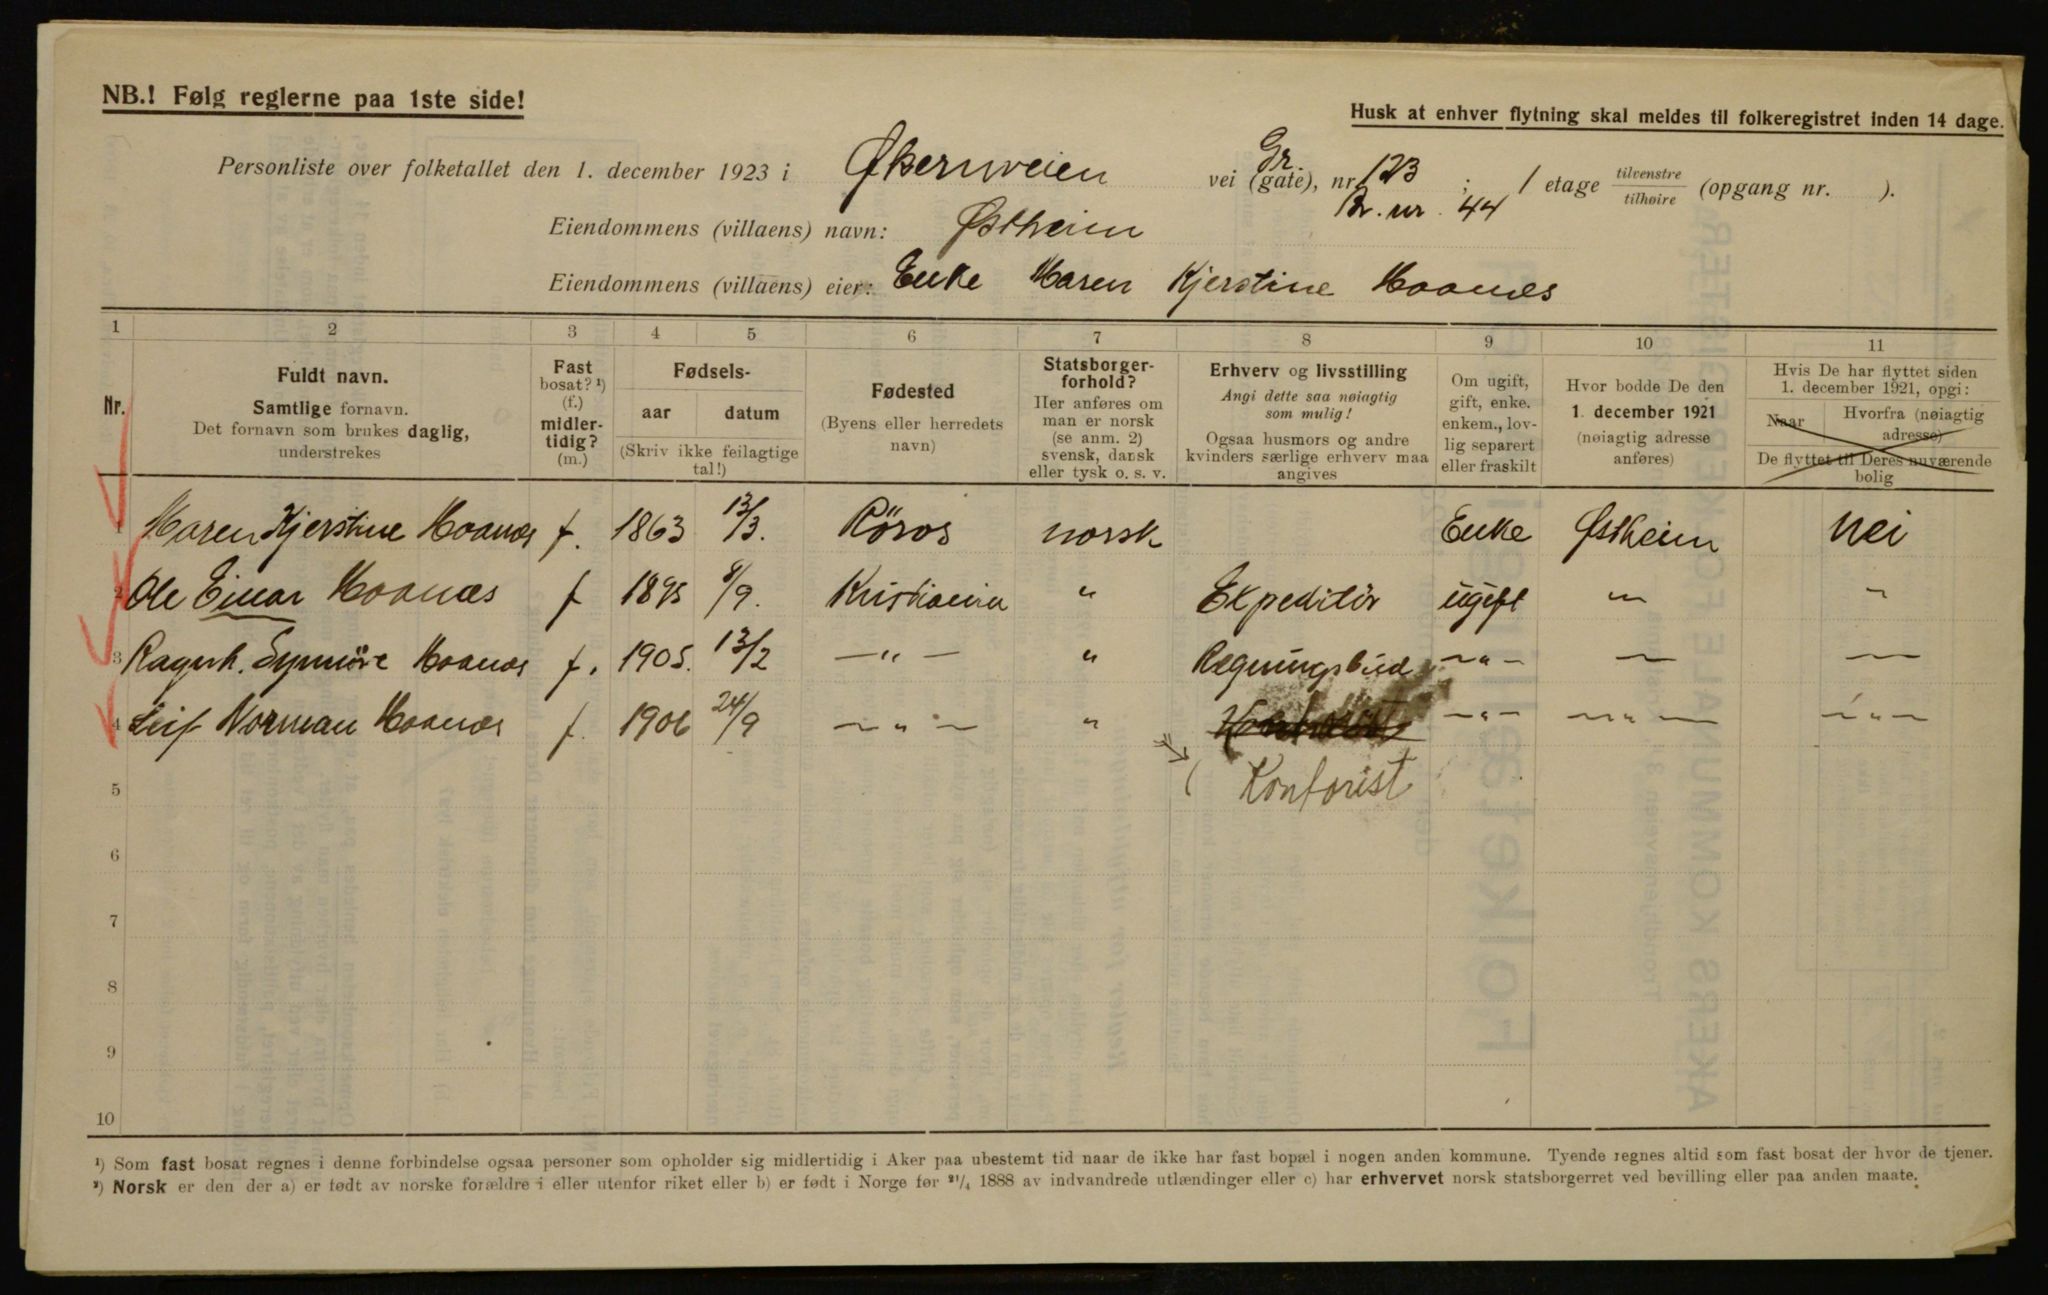 NB.! Følg reglerne paa 1ste side!
Husk at enhver flytning skal meldes til folkeregistret inden 14 dage.
Personliste over folketallet den 1. december 1923 i Økernveien vei (gate), nr. Gr. 123 ; 1 etage tilvenstre/tilhøire (opgang nr. ).
Br. nr. 44
Eiendommens (villaens) navn: Østheim
Eiendommens (villaens) eier: Enke Maren Kjerstine Moanes
1 2 3 4 5 6 7 8 9 10 11
Nr.
Fuldt navn.
Samtlige fornavn.
Det fornavn som brukes daglig,
understrekes
Fast
bosat? ¹)
(f.)
midler-
tidig?
(m.)
Fødsels-
aar datum
(Skriv ikke feilagtige
tal!)
Fødested
(Byens eller herredets
navn)
Statsborger-
forhold?
Her anføres om
man er norsk
(se anm. 2)
svensk, dansk
eller tysk o. s. v.
Erhverv og livsstilling
Angi dette saa nøiagtig
som mulig!
Ogsaa husmors og andre
kvinders særlige erhverv maa
angives
Om ugift,
gift, enke.
enkem., lov-
lig separert
eller fraskilt
Hvor bodde De den
1. december 1921
(nøiagtig adresse
anføres)
Hvis De har flyttet siden
1. december 1921, opgi:
Naar
Hvorfra (nøiagtig
adresse)
De flyttet til Deres nuværende
bolig
1 Maren Kjerstine Moanes f. 1863 13/3. Röros norsk Enke Østheim Nei
2 Ole Einar Moanes f 1895 8/9. Kristiania " Expeditör ugift " "
3 Ragnh. Synnöve Moanes f. 1905. 13/2 — " — " Regningsbud — " — — —
4 Leif Norman Moanes f. 1906 24/9 — " — " — " — — " — — " —
5 Kontorist
6
7
8
9
10
¹) Som fast bosat regnes i denne forbindelse ogsaa personer som opholder sig midlertidig i Aker paa ubestemt tid naar de ikke har fast bopæl i nogen anden kommune. Tyende regnes altid som fast bosat der hvor de tjener.
²) Norsk er den der a) er født av norske forældre i eller utenfor riket eller b) er født i Norge før ²¹/₄ 1888 av indvandrede utlændinger eller c) har erhvervet norsk statsborgerret ved bevilling eller paa anden maate.